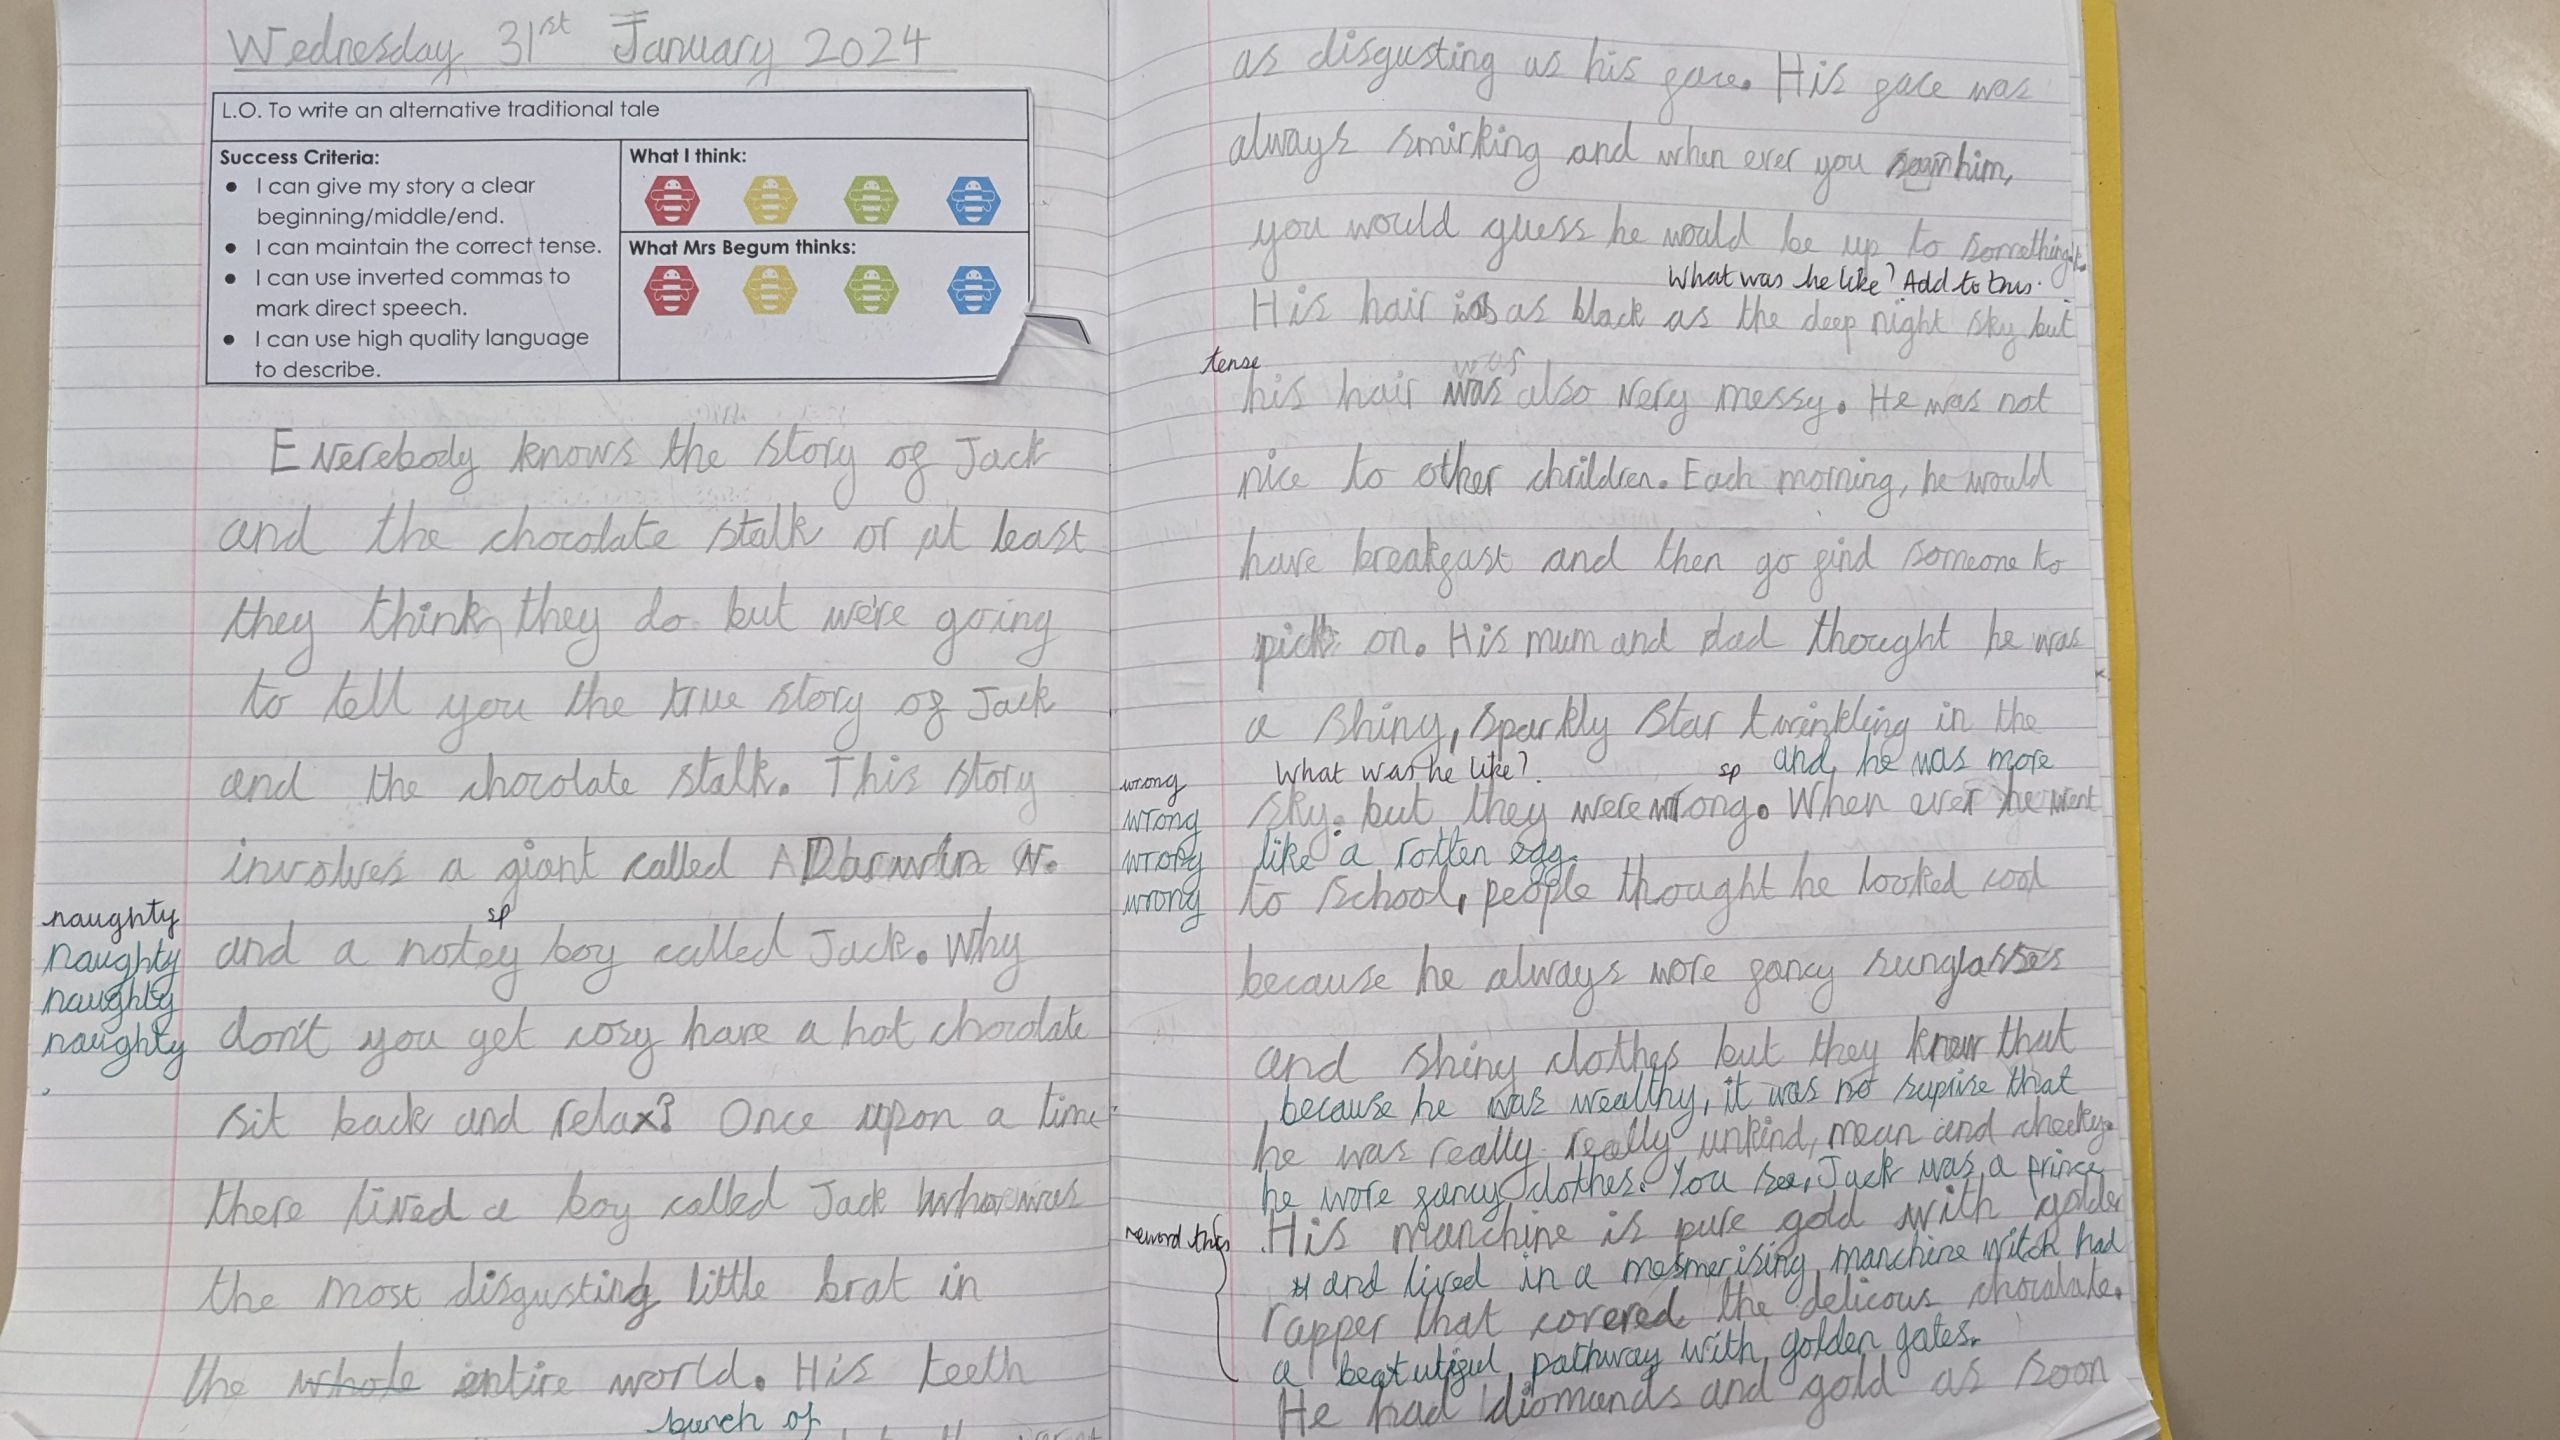 Wednesday 31st January 2024
L.O. To write an alternative traditional tale
Success Criteria:
● I can give my story a clear
beginning/middle/end.
● I can maintain the correct tense.
● I can use inverted commas to
mark direct speech.
● I can use high quality language
to describe.
What I think:
What Mrs Begum thinks:
Everebody knows the story of Jack
and the chocolate stalk or at least
they think they do but we're going
to tell you the true story of Jack
and the chocolate stalk. This story
involves a giant called Darwin N.
naughty
sp
and a notey boy called Jack. Why
naughty
naughty
don't you get cosy have a hot chocolate
naughty
sit back and relax? Once upon a time
there lived a boy called Jack who was
the most disgusting little brat in
the whole entire world. His teeth
bunch of
as disgusting as his face. His face was
always smirking and when ever you saw him,
you would guess he would be up to something.
What was he like? Add to this.
His hair was as black as the deep night sky but
tense
was
his hair was also very messy. He was not
nice to other chrildren. Each morning, he would
have breakfast and then go find someone to
pick on. His mum and dad thought he was
a shiny, sparkly star twinkling in the
wrong What was he like? sp and he was more
wrong sky. but they were wrong. When ever he went
wrong like a rotten egg.
wrong to school, people thought he looked cool
because he always wore fancy sunglasses
and shiny clothes but they knew that
because he was wealthy, it was no suprise that
he was really really unkind, mean and cheeky.
he wore fancy clothes. You see, Jack was a prince
reword this His manchine is pure gold with golden
and lived in a mesmerising manchine witch had
rapper that covered the delicous chocolate.
a beatutiful pathway with golden gates.
He had diomands and gold as soon